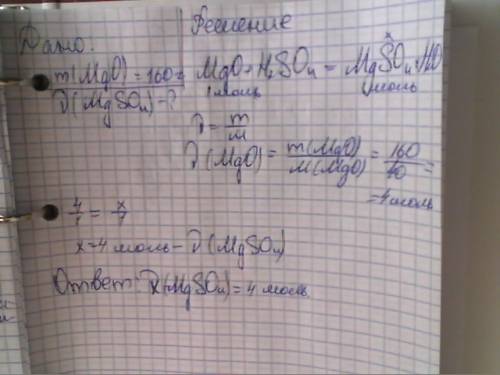 Дано:
Решение
m(MgO) = 160г
ν(MgSO₄) - ?
x
MgO + H₂SO₄ = MgSO₄ + H₂O
1 моль 1 моль
ν = m/M
ν(MgO) = m(MgO)/M(MgO) = 160/40 =
= 4 моль
4/1 = x/1
x = 4 моль - ν(MgSO₄)
Ответ: ν(MgSO₄) = 4 моль.